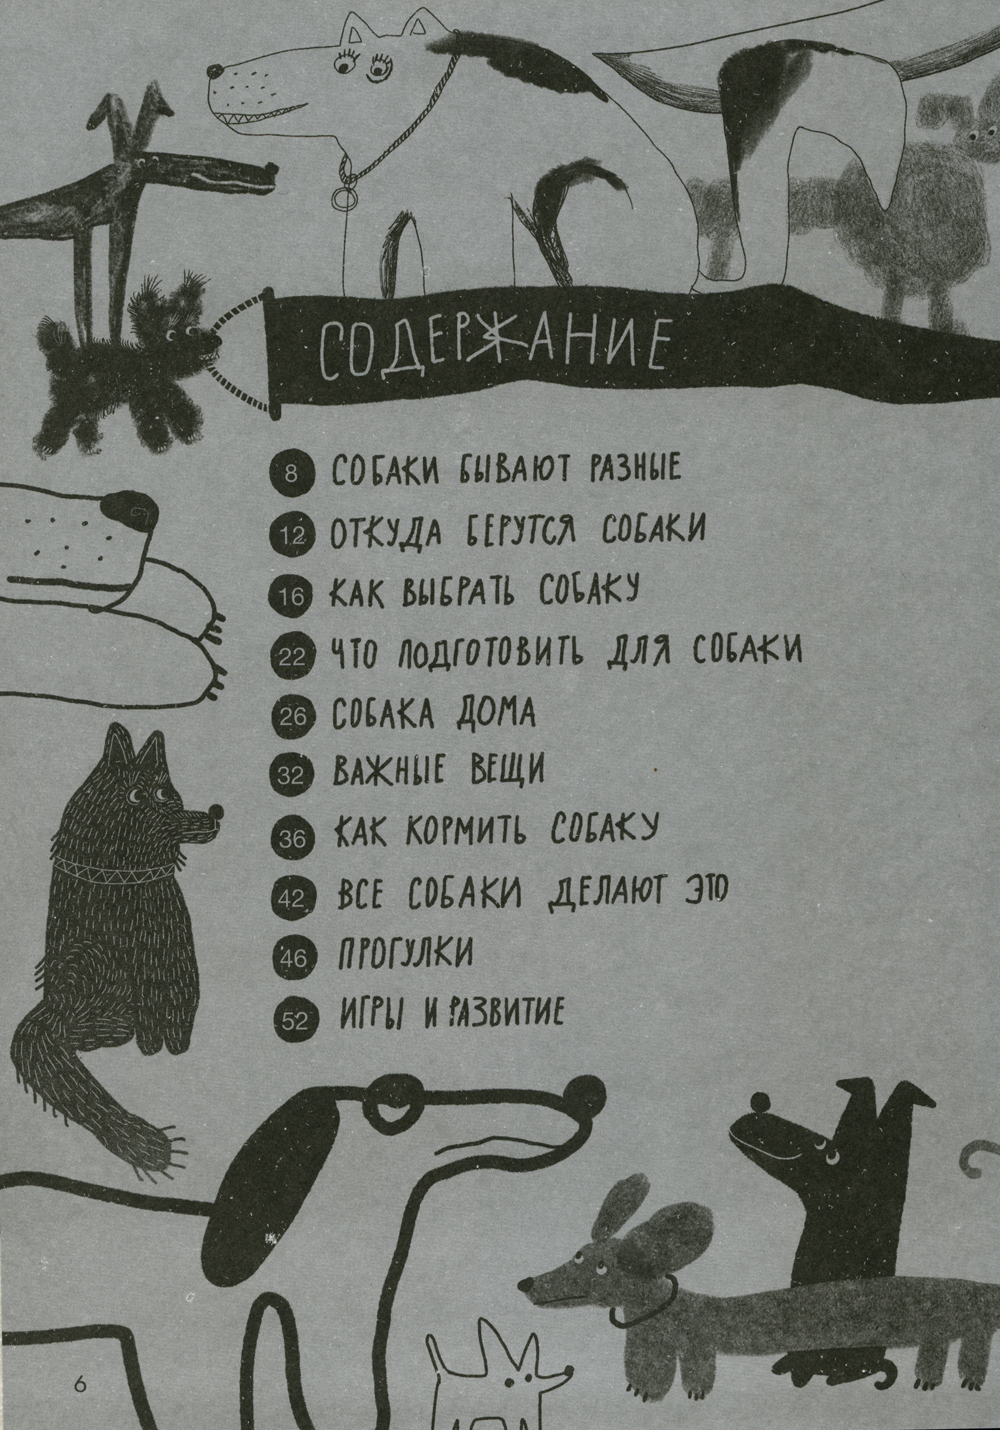 СОДЕРЖАНИЕ
8 СОБАКИ БЫВАЮТ РАЗНЫЕ
12 ОТКУДА БЕРУТСЯ СОБАКИ
16 КАК ВЫБРАТЬ СОБАКУ
22 ЧТО ПОДГОТОВИТЬ ДЛЯ СОБАКИ
26 СОБАКА ДОМА
32 ВАЖНЫЕ ВЕЩИ
36 КАК КОРМИТЬ СОБАКУ
42 ВСЕ СОБАКИ ДЕЛАЮТ ЭТО
46 ПРОГУЛКИ
52 ИГРЫ И РАЗВИТИЕ
6